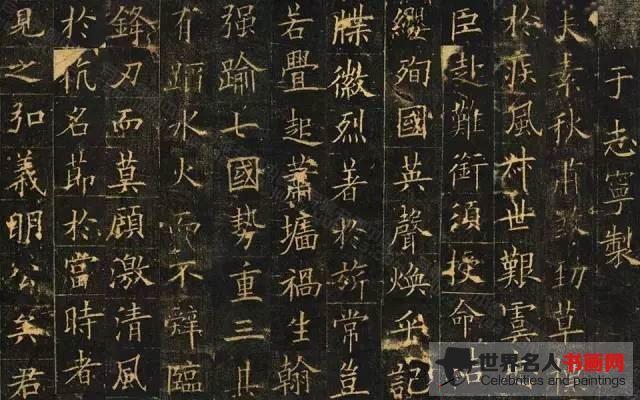 于志寧製
夫素秋肅煞勁草標
於疾風叔世艱虞
臣赴難銜須授命結
纓殉國英聲煥乎記
牒徽烈著於旂常豈
若疊起蕭墻禍生翰
强踰七國勢重三其
有蹈水火而不辭臨
鋒刃而莫顧激清風
於抗名節於當時者
見之弘義明公矣君
世界名人书画网
Celebrities and paintings